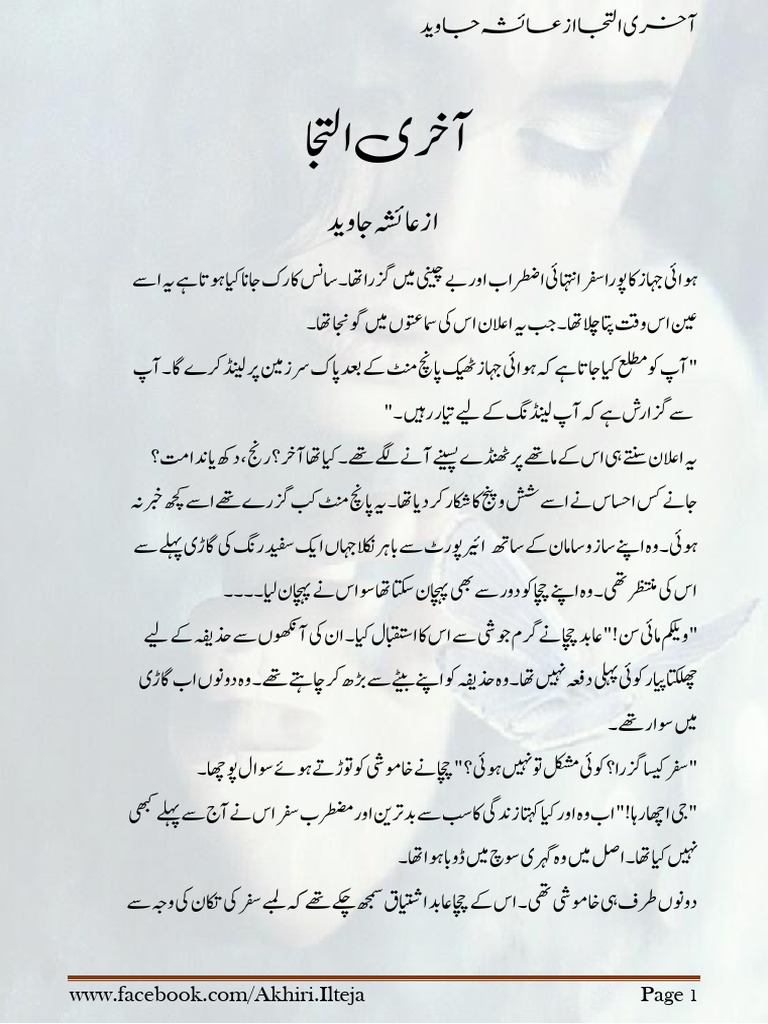 آخری التجا از عائشہ جاوید
آخری التجا
از عائشہ جاوید
ہوائی جہاز کا پورا سفر انتہائی اضطراب اور بے چینی میں گزرا تھا۔ سانس کا رک جانا کیا ہوتا ہے یہ اسے
عین اس وقت پتا چلا تھا۔ جب یہ اعلان اس کی سماعتوں میں گونجا تھا۔
"آپ کو مطلع کیا جاتا ہے کہ ہوائی جہاز ٹھیک پانچ منٹ کے بعد پاک سرزمین پر لینڈ کرے گا۔ آپ
سے گزارش ہے کہ آپ لینڈنگ کے لیے تیار رہیں۔"
یہ اعلان سنتے ہی اس کے ماتھے پر ٹھنڈے پسینے آنے لگے تھے۔ کیا تھا آخر؟ رنج، دکھ یا ندامت؟
جانے کس احساس نے اسے شش و پنج کا شکار کر دیا تھا۔ یہ پانچ منٹ کب گزرے تھے اسے کچھ خبر نہ
ہوئی۔ وہ اپنے سازو سامان کے ساتھ ائیر پورٹ سے باہر نکلا جہاں ایک سفید رنگ کی گاڑی پہلے سے
اس کی منتظر تھی۔ وہ اپنے چچا کو دور سے بھی پہچان سکتا تھا سو اس نے پہچان لیا۔۔۔۔
"ویلکم مائی سن!" عابد چچا نے گرم جوشی سے اس کا استقبال کیا۔ ان کی آنکھوں سے حذیفہ کے لیے
چھلکتا پیار کوئی پہلی دفعہ نہیں تھا۔ وہ حذیفہ کو اپنے بیٹے سے بڑھ کر چاہتے تھے۔ وہ دونوں اب گاڑی
میں سوار تھے۔
"سفر کیسا گزرا؟ کوئی مشکل تو نہیں ہوئی؟" چچا نے خاموشی کو توڑتے ہوئے سوال پوچھا۔
"جی اچھا رہا!" اب وہ اور کیا کہتا زندگی کا سب سے بدترین اور مضطرب سفر اس نے آج سے پہلے کبھی
نہیں کیا تھا۔ اصل میں وہ گہری سوچ میں ڈوبا ہوا تھا۔
دونوں طرف ہی خاموشی تھی۔ اس کے چچا عابد اشتیاق سمجھ چکے تھے کہ لمبے سفر کی تکان کی وجہ سے
www.facebook.com/Akhiri.Ilteja Page 1